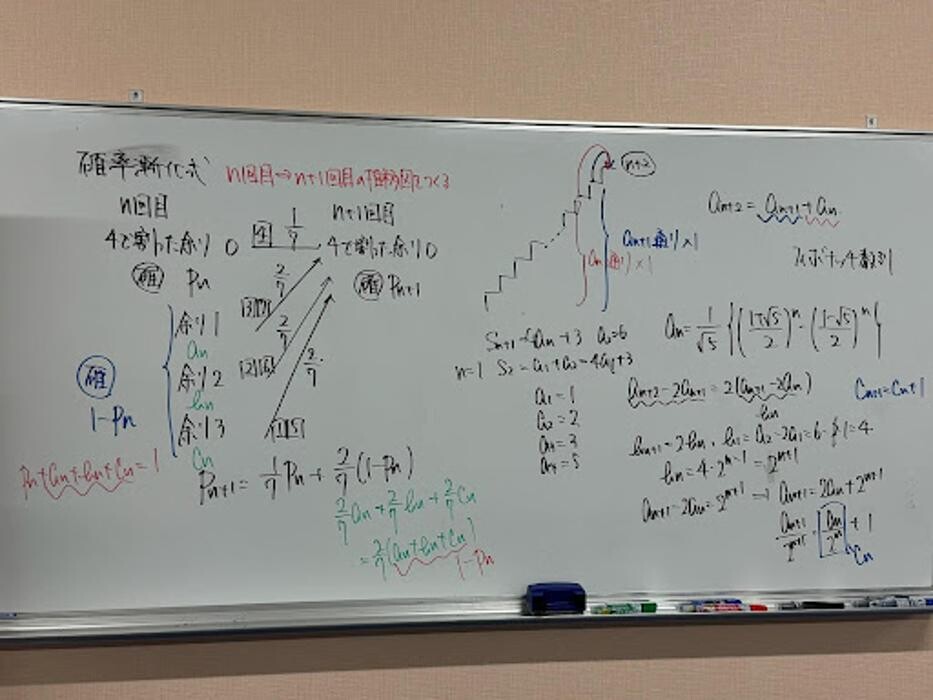 確率漸化式 n回目→n+1回目の推移図をつくる
n回目
n+1回目
4で割った余り 0
4
1/7
4で割った余り 0
確 Pn
確 Pn+1
余り1
an
3 7
2/7
余り2
bn
2 6
2/7
余り3
cn
1 5
2/7
確
1-Pn
Pn+an+bn+cn=1
Pn+1 = 1/7 Pn + 2/7 (1-Pn)
2/7 an + 2/7 bn + 2/7 cn
= 2/7 (an+bn+cn)
1-Pn
n+2
an+1通り×1
an通り×1
an+2 = an+1 + an
フィボナッチ数列
an = 1/√5 { ((1+√5)/2)^n - ((1-√5)/2)^n }
Sn+1 = 4an + 3 a2=6
n=1 S2 = a1+a2 = 4a1+3
a1 = 1
a2 = 2
a4 = 3
a4 = 5
an+2 - 2an+1 = 2(an+1 - 2an)
bn
Cn+1 = Cn + 1
bn+1 = 2bn, b1 = a2 - 2a1 = 6 - 2·1 = 4
bn = 4·2^n-1 = 2^n+1
an+1 - 2an = 2^n+1 ⇒ an+1 = 2an + 2^n+1
an+1/2^n+1 = an/2^n + 1
Cn